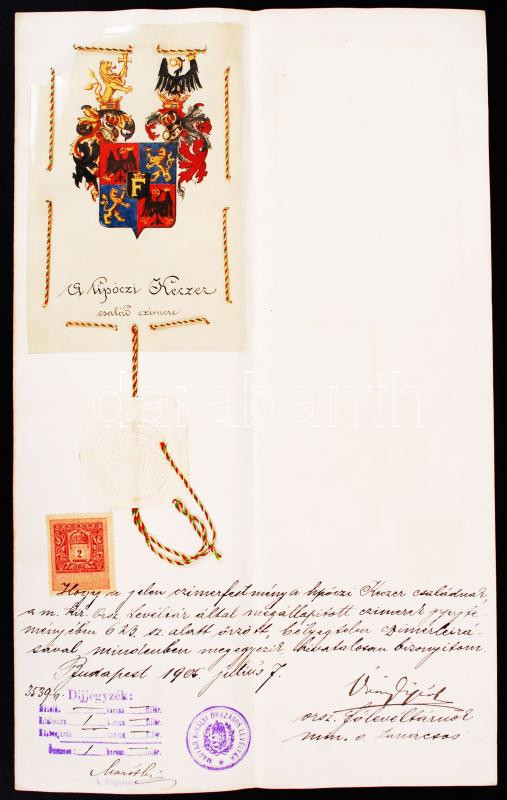 F
A lipóczi Keczer
család czimere
darabanth
2
KORONA
Hogy a jelen czimerfestmény a lipóczi Keczer családnak,
a m. kir. orsz. Levéltár által megállapitott czimerek gyüjte-
ményében 623. sz. alatt őrzött, bélyegtelen czimerleirá-
sával mindenben megegyezik hivatalosan bizonyitom.
Budapest 1906 julius 7.
3539
Dijjegyzék:
korona fillér.
1 korona fillér.
korona fillér.
Összesen: 1 korona fillér.
MAGYAR KIRÁLYI ORSZÁGOS LEVÉLTÁR
orsz. főlevéltárnok
min. o. tanácsos